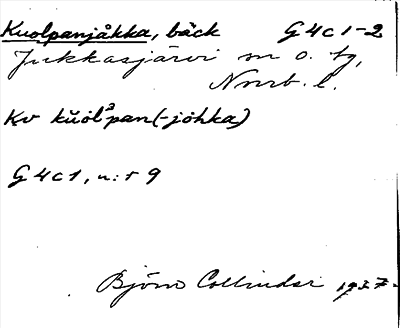 Kuolpanjåkka, bäck G4c1-2
Jukkasjärvi sn o. tg,
Nrrb. l.
Kv kŭŏlᵃpan(-johka)
G4c1, n:r 9
Björn Collinder 1937.